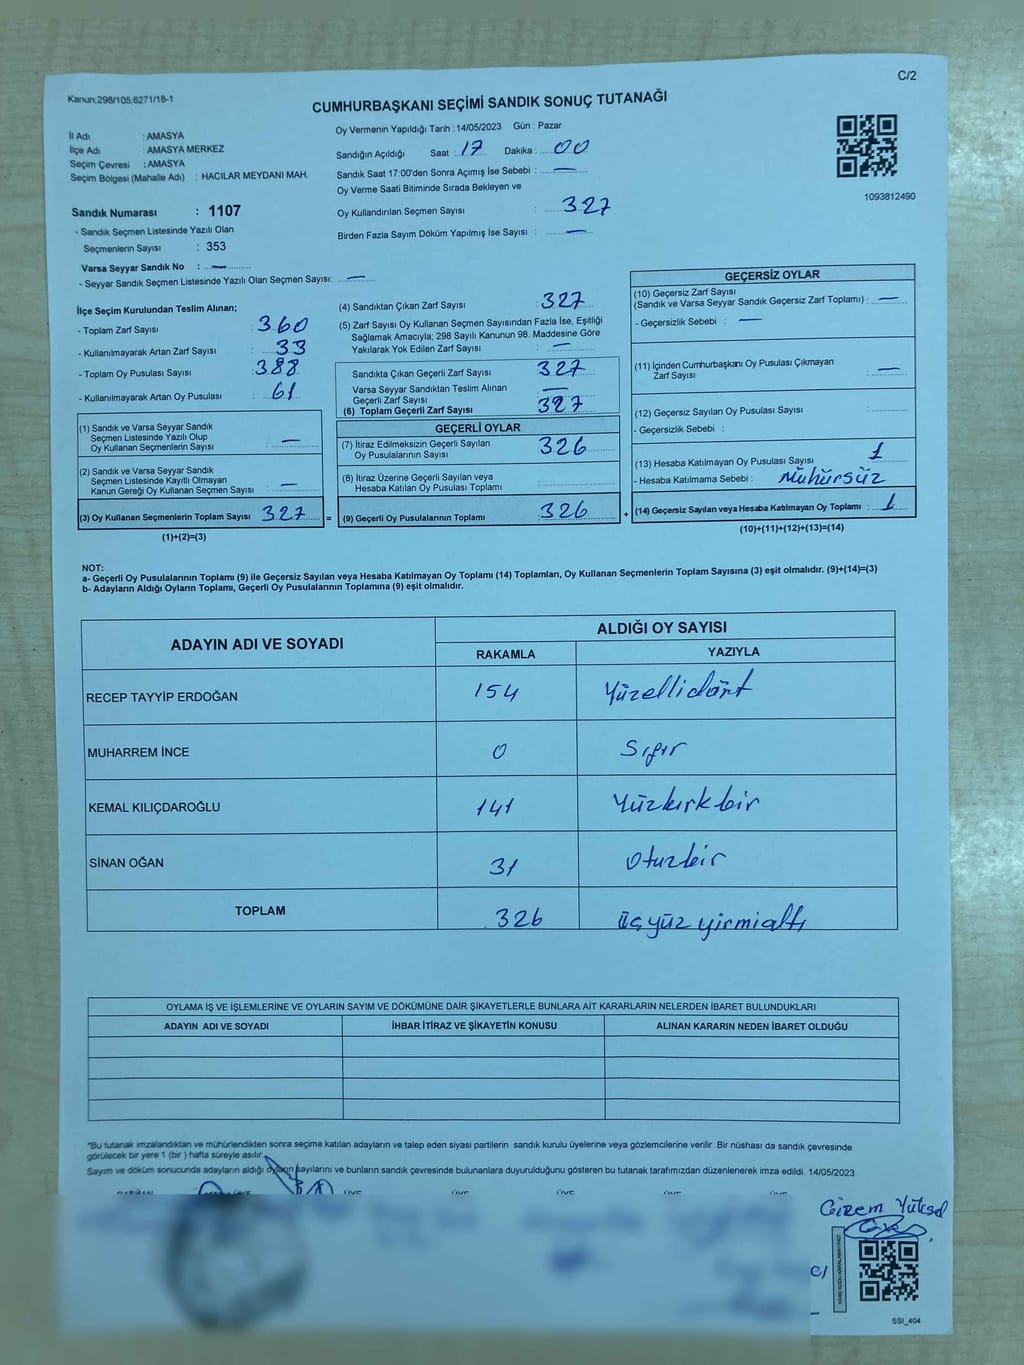 C/2
Kanun;298/105,6271/18-1
CUMHURBAŞKANI SEÇİMİ SANDIK SONUÇ TUTANAĞI
İl Adı : AMASYA
İlçe Adı : AMASYA MERKEZ
Seçim Çevresi : AMASYA
Seçim Bölgesi (Mahalle Adı) : HACILAR MEYDANI MAH.
Sandık Numarası : 1107
- Sandık Seçmen Listesinde Yazılı Olan
Seçmenlerin Sayısı : 353
Varsa Seyyar Sandık No : —
- Seyyar Sandık Seçmen Listesinde Yazılı Olan Seçmen Sayısı: —
Oy Vermenin Yapıldığı Tarih : 14/05/2023 Gün : Pazar
Sandığın Açıldığı Saat : 17 Dakika : 00
Sandık Saat 17:00'den Sonra Açımış İse Sebebi : —
Oy Verme Saati Bitiminde Sırada Bekleyen ve
Oy Kullandırılan Seçmen Sayısı : 327
Birden Fazla Sayım Döküm Yapılmış İse Sayısı : —
1093812490
İlçe Seçim Kurulundan Teslim Alınan;
- Toplam Zarf Sayısı : 360
- Kullanılmayarak Artan Zarf Sayısı : 33
- Toplam Oy Pusulası Sayısı : 388
- Kullanılmayarak Artan Oy Pusulası : 61
(1) Sandık ve Varsa Seyyar Sandık
Seçmen Listesinde Yazılı Olup
Oy Kullanan Seçmenlerin Sayısı : —
(2) Sandık ve Varsa Seyyar Sandık
Seçmen Listesinde Kayıtlı Olmayan
Kanun Gereği Oy Kullanan Seçmen Sayısı : —
(3) Oy Kullanan Seçmenlerin Toplam Sayısı 327 =
(1)+(2)=(3)
(4) Sandıktan Çıkan Zarf Sayısı : 327
(5) Zarf Sayısı Oy Kullanan Seçmen Sayısından Fazla İse, Eşitliği
Sağlamak Amacıyla; 298 Sayılı Kanunun 98. Maddesine Göre
Yakılarak Yok Edilen Zarf Sayısı : —
Sandıkta Çıkan Geçerli Zarf Sayısı : 327
Varsa Seyyar Sandıktan Teslim Alınan
Geçerli Zarf Sayısı : —
(6) Toplam Geçerli Zarf Sayısı : 327
GEÇERLİ OYLAR
(7) İtiraz Edilmeksizin Geçerli Sayılan
Oy Pusulalarının Sayısı : 326
(8) İtiraz Üzerine Geçerli Sayılan veya
Hesaba Katılan Oy Pusulası Toplamı :
(9) Geçerli Oy Pusulalarının Toplamı : 326 +
GEÇERSİZ OYLAR
(10) Geçersiz Zarf Sayısı
(Sandık ve Varsa Seyyar Sandık Geçersiz Zarf Toplamı) : —
- Geçersizlik Sebebi : —
(11) İçinden Cumhurbaşkanı Oy Pusulası Çıkmayan
Zarf Sayısı : —
(12) Geçersiz Sayılan Oy Pusulası Sayısı :
- Geçersizlik Sebebi :
(13) Hesaba Katılmayan Oy Pusulası Sayısı : 1
- Hesaba Katılmama Sebebi : Mühürsüz
(14) Geçersiz Sayılan veya Hesaba Katılmayan Oy Toplamı : 1
(10)+(11)+(12)+(13)=(14)
NOT:
a- Geçerli Oy Pusulalarının Toplamı (9) ile Geçersiz Sayılan veya Hesaba Katılmayan Oy Toplamı (14) Toplamları, Oy Kullanan Seçmenlerin Toplam Sayısına (3) eşit olmalıdır. (9)+(14)=(3)
b- Adayların Aldığı Oyların Toplamı, Geçerli Oy Pusulalarının Toplamına (9) eşit olmalıdır.
ADAYIN ADI VE SOYADI ALDIĞI OY SAYISI
RAKAMLA YAZIYLA
RECEP TAYYİP ERDOĞAN 154 Yüzellidört
MUHARREM İNCE 0 Sıfır
KEMAL KILIÇDAROĞLU 141 Yüzkırkbir
SİNAN OĞAN 31 Otuzbir
TOPLAM 326 üçyüz yirmialtı
OYLAMA İŞ VE İŞLEMLERİNE VE OYLARIN SAYIM VE DÖKÜMÜNE DAİR ŞİKAYETLERLE BUNLARA AİT KARARLARIN NELERDEN İBARET BULUNDUKLARI
ADAYIN ADI VE SOYADI İHBAR İTİRAZ VE ŞİKAYETİN KONUSU ALINAN KARARIN NEDEN İBARET OLDUĞU
*Bu tutanak imzalandıktan ve mühürlendikten sonra seçime katılan adayların ve talep eden siyasi partilerin sandık kurulu üyelerine veya gözlemcilerine verilir .Bir nüshası da sandık çevresinde
görülecek bir yere 1 (bir ) hafta süreyle asılır.
Sayım ve döküm sonucunda adayların aldığı oyların sayılarını ve bunların sandık çevresinde bulunanlara duyurulduğunu gösteren bu tutanak tarafımızdan düzenlenerek imza edildi. 14/05/2023
Gizem Yüksel
SSI_404